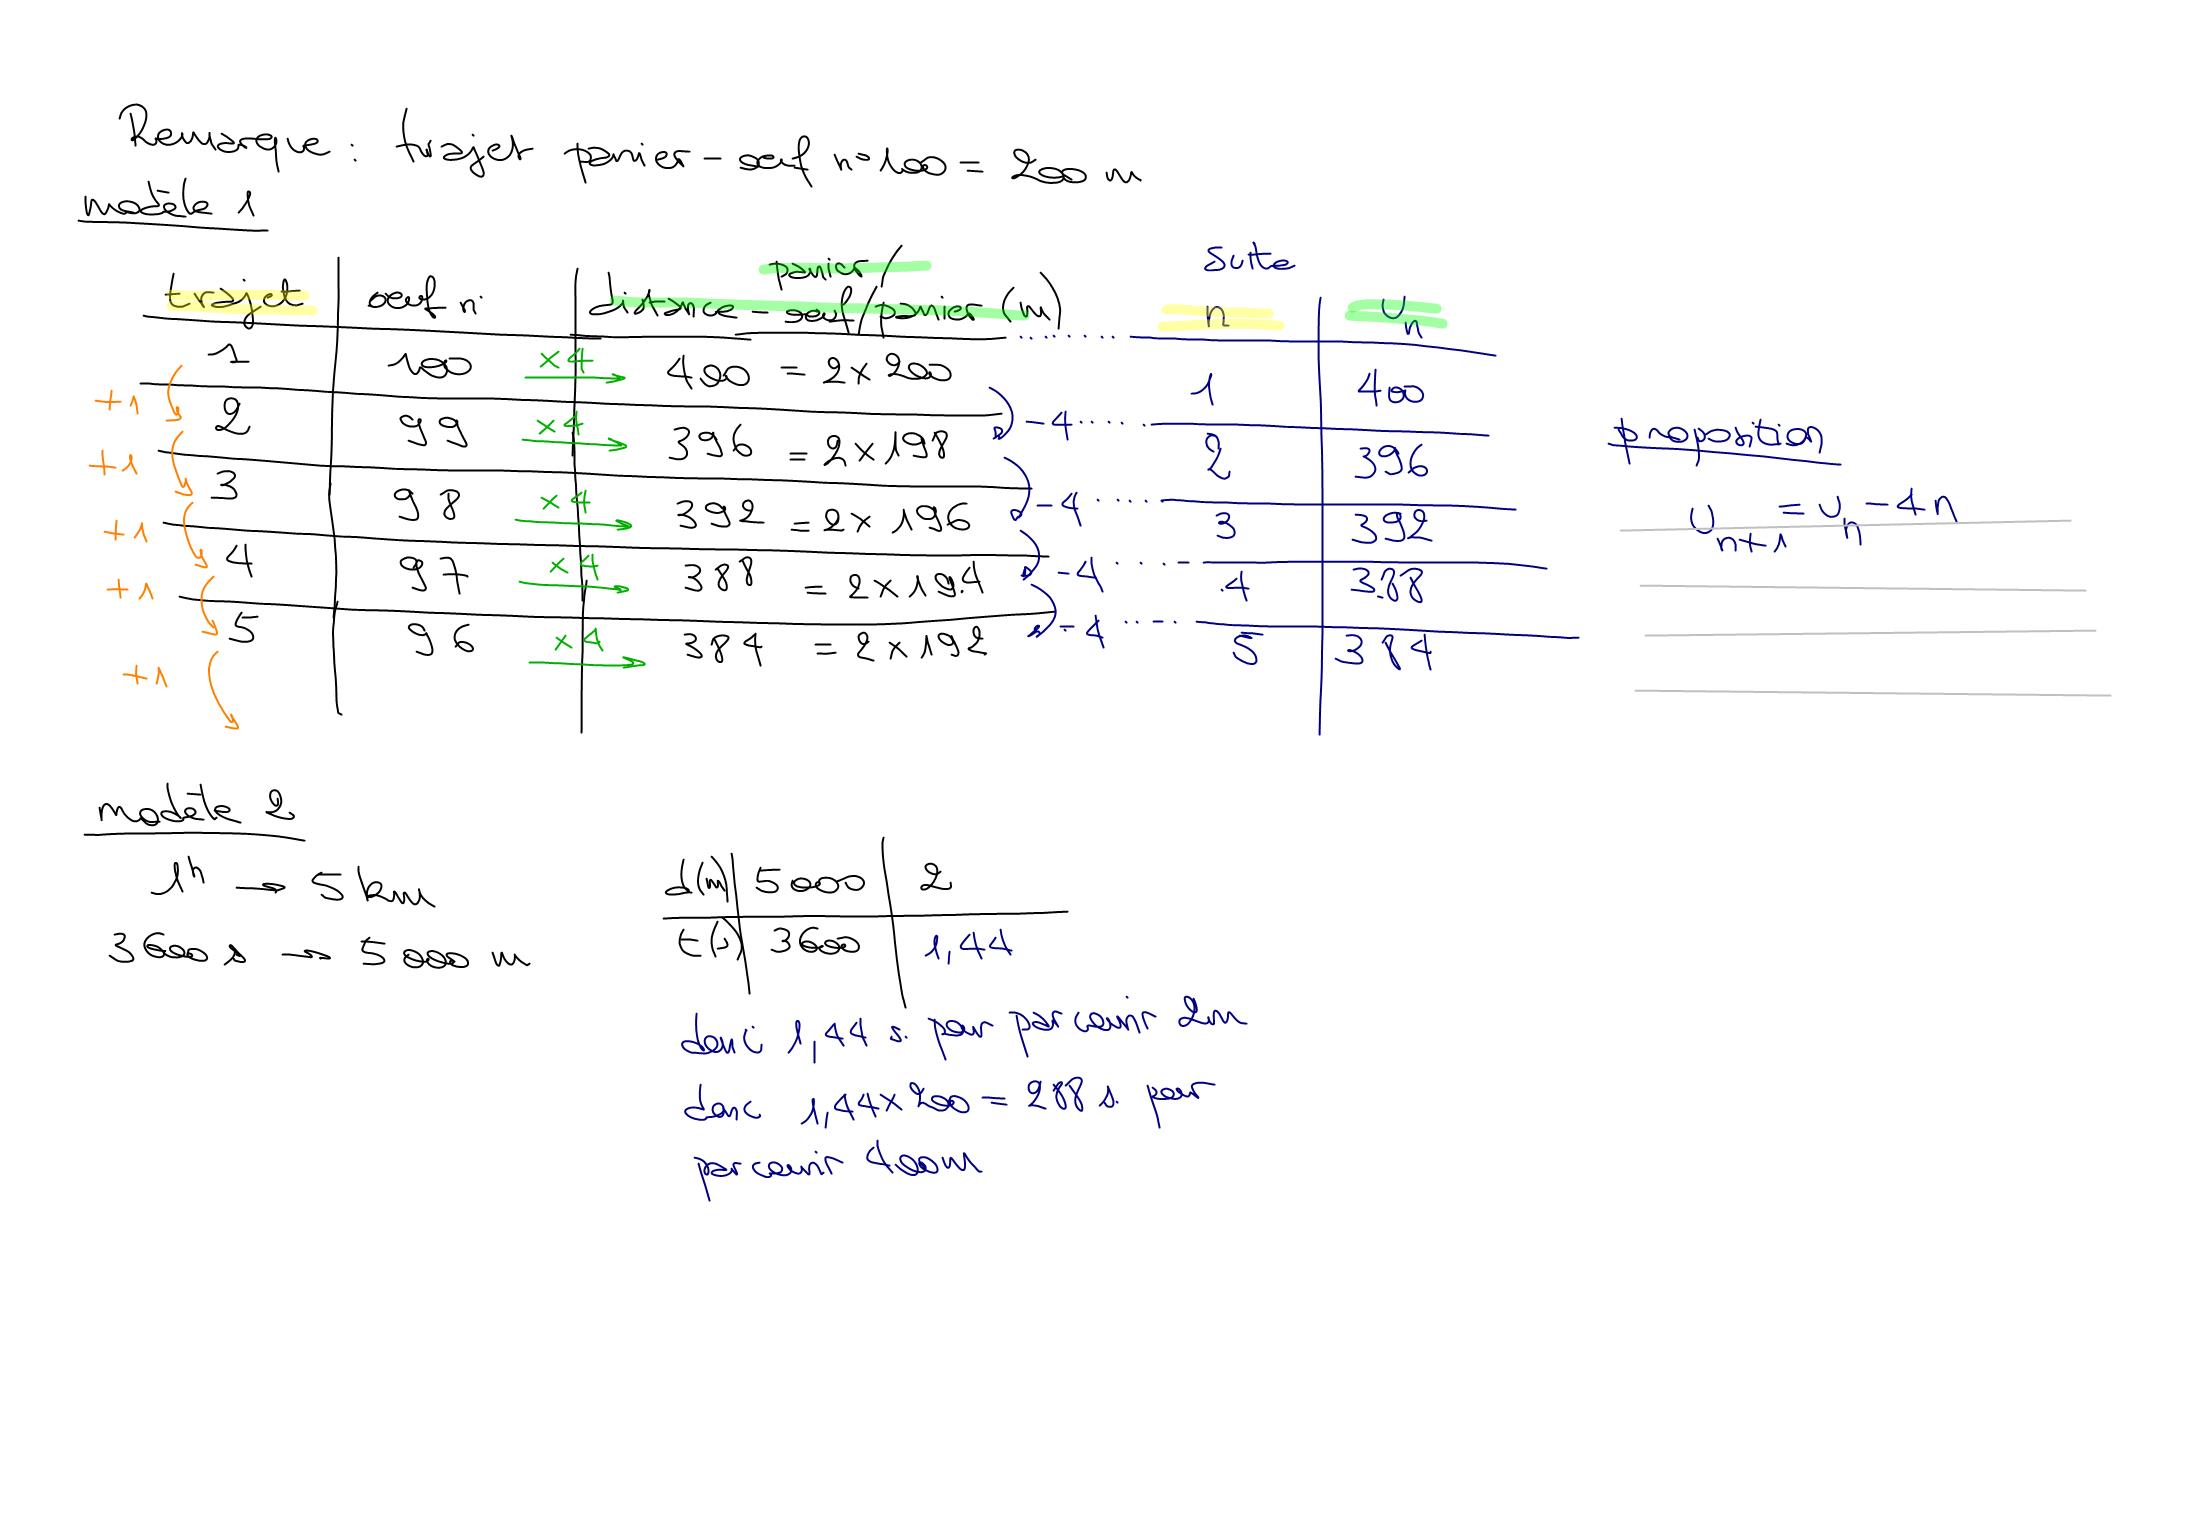 Remarque : trajet panier - oeuf n° 100 = 200 m
modèle 1
trajet | oeuf n° | distance panier/ - oeuf/panier (m) | suite n | Un
1 | 100 | ×4 | 400 = 2 × 200 | 1 | 400
+1 | 2 | 99 | ×4 | 396 = 2 × 198 | -4 | 2 | 396
+1 | 3 | 98 | ×4 | 392 = 2 × 196 | -4 | 3 | 392
+1 | 4 | 97 | ×4 | 388 = 2 × 194 | -4 | 4 | 388
+1 | 5 | 96 | ×4 | 384 = 2 × 192 | -4 | 5 | 384
+1
proposition
Un+1 = Un - 4n
modèle 2
1h → 5 km
3600 s → 5000 m
d(m) | 5000 | 2
t(s) | 3600 | 1,44
donc 1,44 s. pour parcourir 2m
donc 1,44 × 200 = 288 s. pour
parcourir 400m